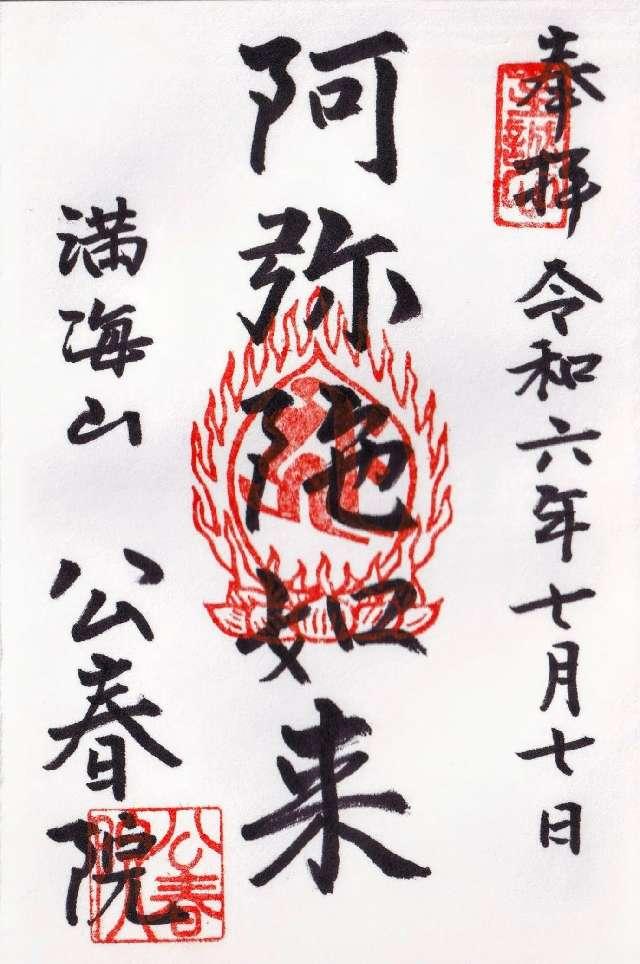 奉拝 令和六年七月七日
阿弥陀如来
満海山 公春院
公春院